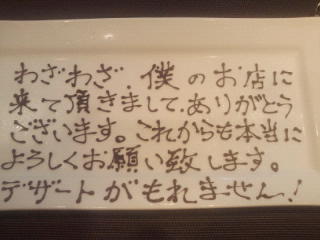 わざわざ、僕のお店に
来て頂きまして、ありがとう
ございます。これからも本当に
よろしくお願い致します。
デザートがもれません!